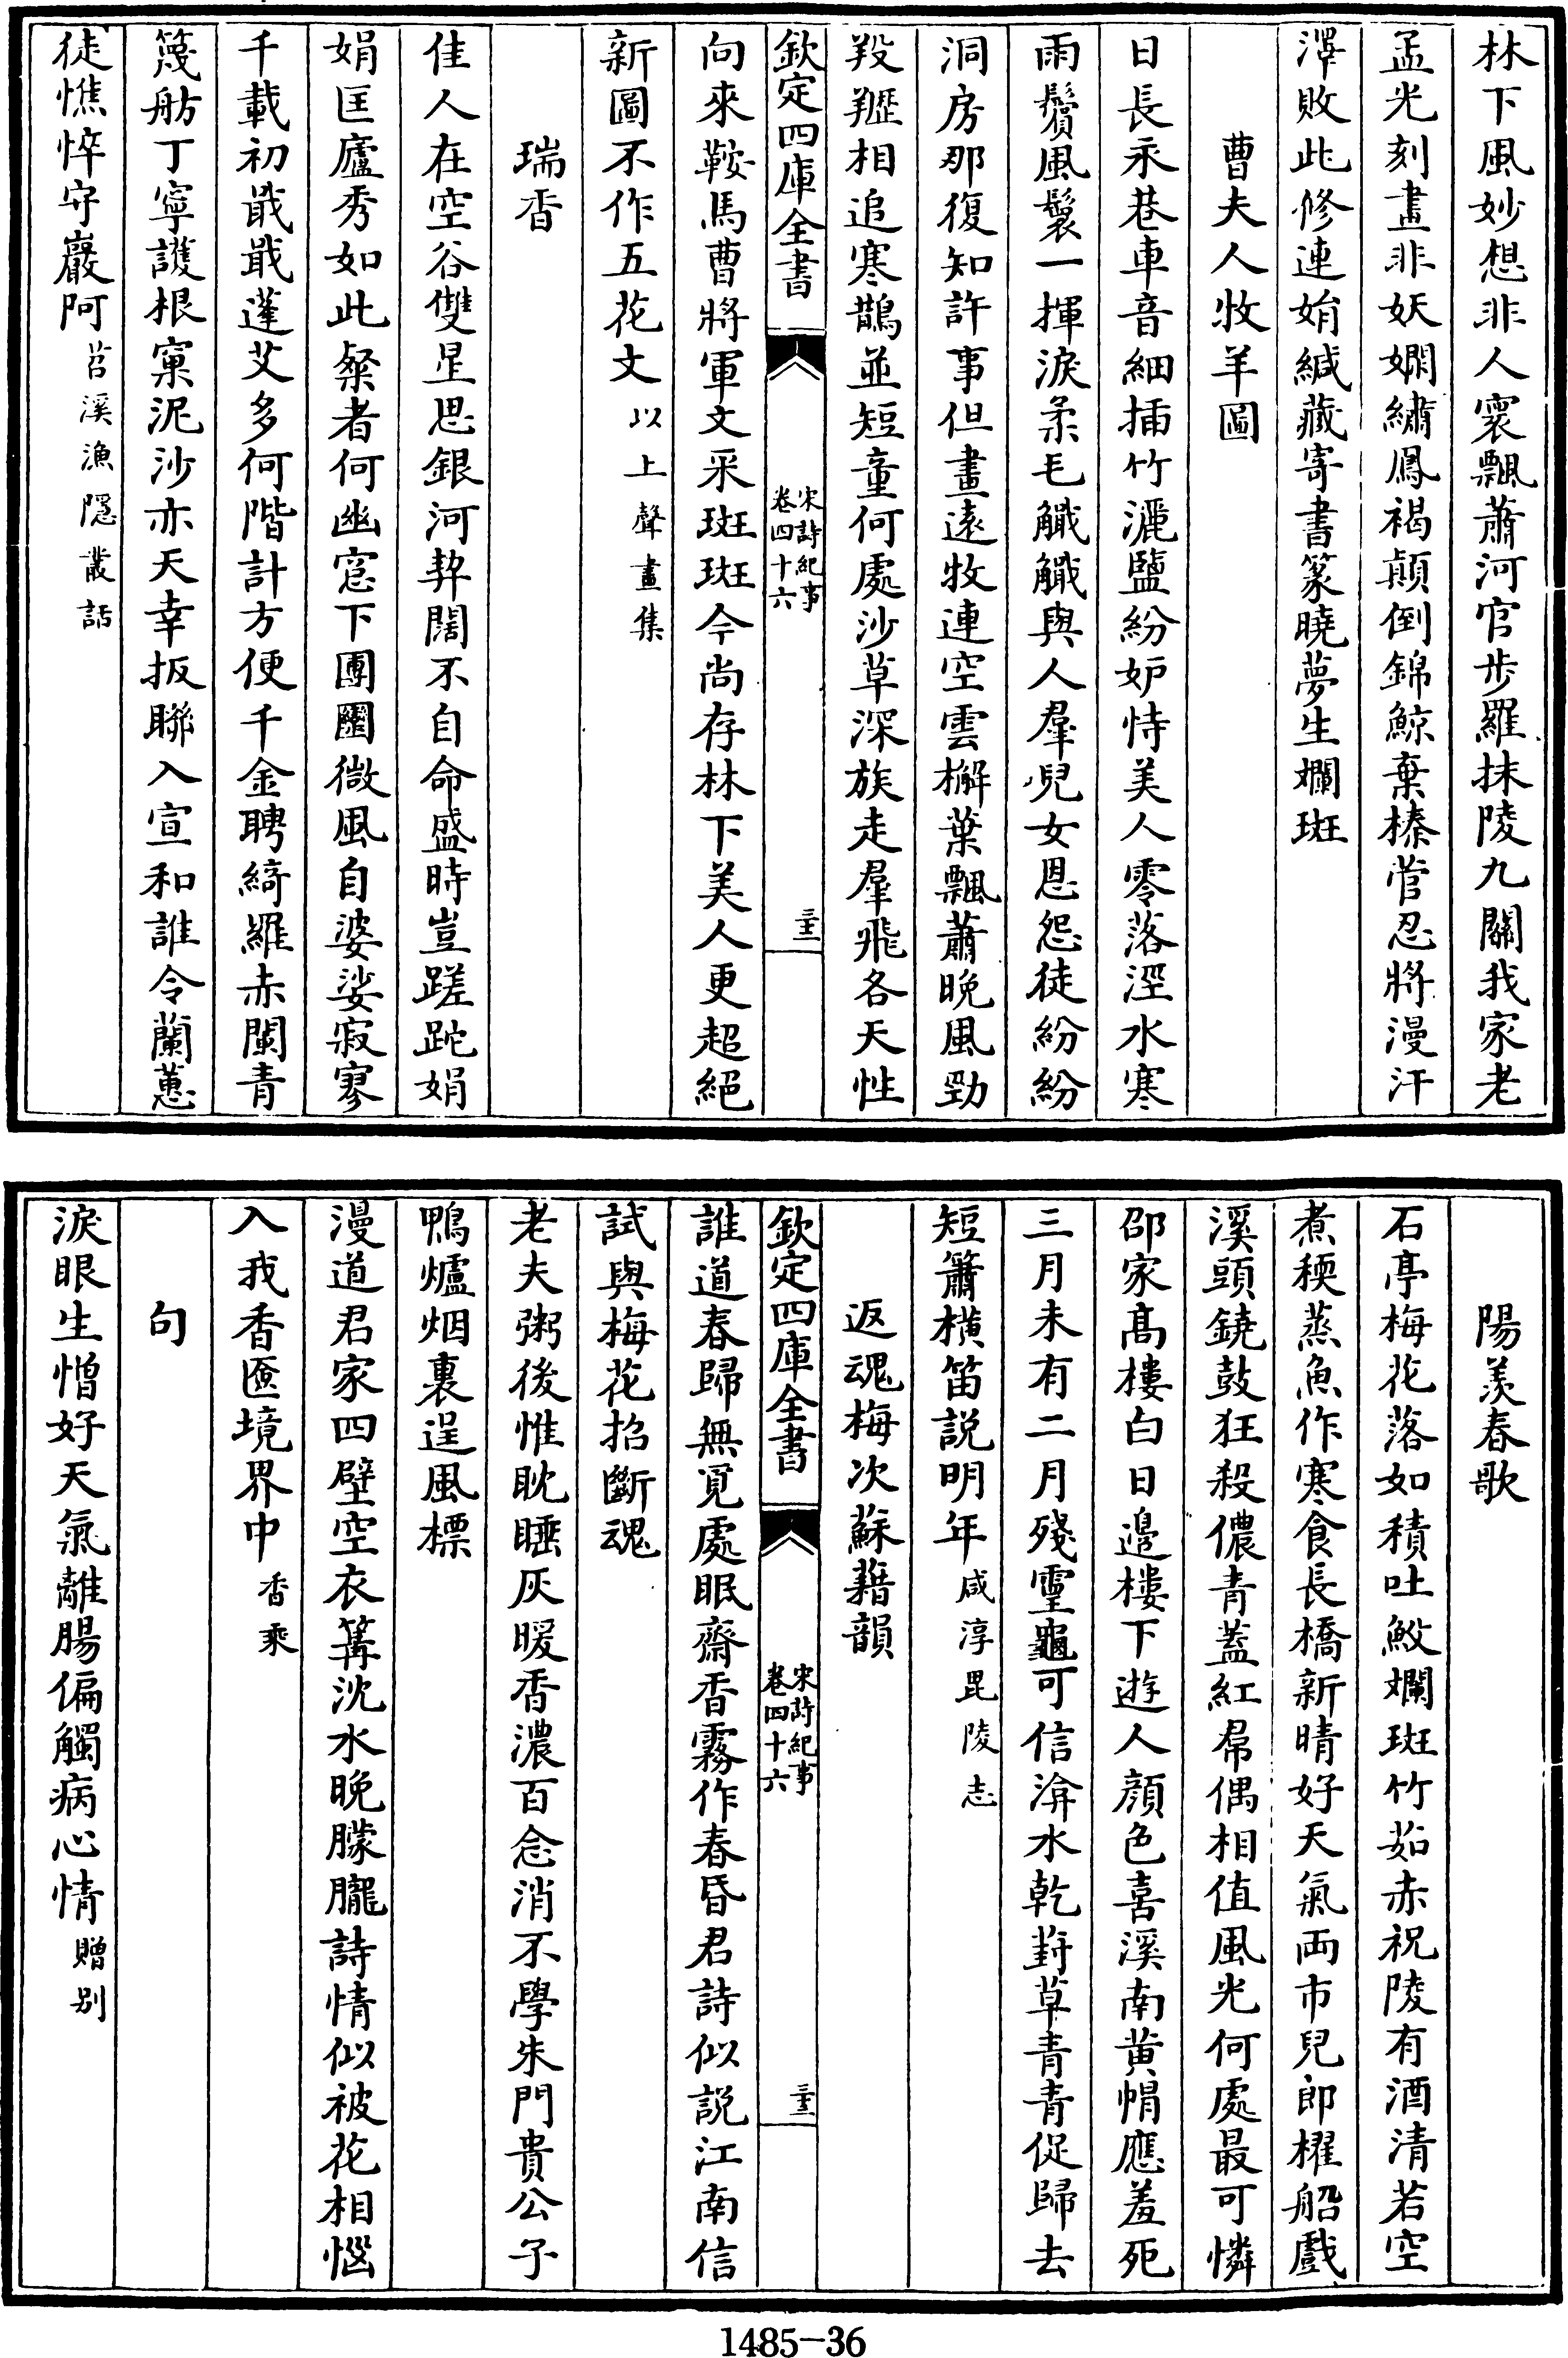 林下風妙想非人寰飄蕭河官步羅抹陵九關我家老
孟光刻畫非妖嫻繡鳳褐顛倒錦鯨棄榛菅忍將漫汗
澤敗此修連娟緘藏寄書篆曉夢生斕斑
曹夫人牧羊圖
日長永巷車音細插竹灑鹽紛妒恃美人零落涇水寒
雨鬢風鬟一揮淚柔毛觹觹與人羣兒女恩怨徒紛紛
洞房那復知許事但畫遠牧連空雲檞葉飄蕭晚風勁
羖䍽相追寒鵲並短童何處沙草深族走羣飛各天性
欽定四庫全書
宋詩紀事
卷四十六
向來鞍馬曹將軍文采斑斑今尚存林下美人更超絕
新圖不作五花文以上聲畫集
瑞香
佳人在空谷雙星思銀河契闊不自命盛時豈蹉跎娟
娟匡廬秀如此粲者何幽窓下團圞微風自婆娑寂寥
千載初戢戢蓬艾多何階計方便千金聘綺羅赤闌青
篾舫丁寧護根窠泥沙亦天幸扳聯入宣和誰令蘭蕙
徒憔悴守巖阿苕溪漁隱叢話
陽羨春歌
石亭梅花落如積吐鮫斕斑竹茹赤祝陵有酒清若空
煮稬蒸魚作寒食長橋新晴好天氣兩市兒郎櫂船戲
溪頭鐃鼓狂殺儂青葢紅帬偶相值風光何處最可憐
邵家髙樓白日邊樓下遊人顔色喜溪南黄帽應羞死
三月未有二月殘靈龜可信渰水乾葑草青青促歸去
短簫横笛説明年咸淳毘陵志
返魂梅次蘇藉韻
欽定四庫全書
宋詩紀事
卷四十六
誰道春歸無覓處眠齋香霧作春昏君詩似説江南信
試與梅花招斷魂
老夫粥後惟耽睡灰暖香濃百念消不學朱門貴公子
鴨爐烟裏逞風標
漫道君家四壁空衣篝沈水晚朦朧詩情似被花相惱
入我香匳境界中香乘
句
淚眼生憎好天氣離腸偏觸病心情贈别
1485-36